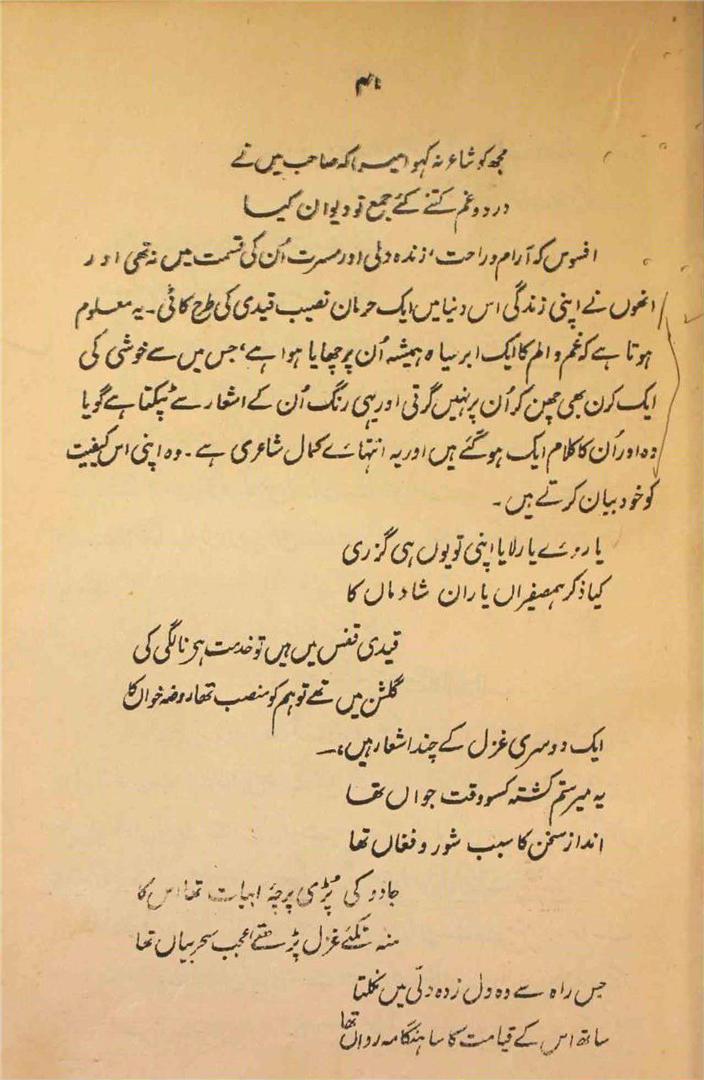 مجھ کو شاعر نہ کہو میر کہ صاحب میں نے
درد و غم کتنے کئے جمع تو دیوان کیا
افسوس کہ آرام و راحت، زندہ دلی اور مسرت اُن کی قسمت میں نہ تھی اور
انھوں نے اپنی زندگی اس دنیا میں ایک حرمان نصیب قیدی کی طرح کاٹی۔ یہ معلوم
ہوتا ہے کہ غم و الم کا ایک ابر سیاہ ہمیشہ اُن پر چھایا ہوا ہے، جس میں سے خوشی کی
ایک کرن بھی چھن کر اُن پر نہیں گرتی اور یہی رنگ اُن کے اشعار سے ٹپکتا ہے گویا
وہ اور اُن کا کلام ایک ہو گئے ہیں اور یہ انتہائے کمال شاعری ہے۔ وہ اپنی اس کیفیت
کو خود بیان کرتے ہیں۔
یا روئے یا رلایا اپنی تو یوں ہی گزری
کیا ذکر ہمصفیراں یاران شادماں کا
قیدی قفس میں ہیں تو خدمت ہی نالگی کی
گلشن میں تھے تو ہم کو منصب تھا روضہ خواں کا
ایک دوسری غزل کے چند اشعار ہیں:۔
یہ میر ستم کشتہ کسو وقت جواں تھا
انداز سخن کا سبب شور و فغاں تھا
جادو کی پُڑی پرچۂ ابیات تھا اس کا
منہ تکئے غزل پڑھتے عجب سحر بیاں تھا
جس راہ سے وہ دل زدہ دلّی میں نکلتا
ساتھ اس کے قیامت کا سا ہنگامہ رواں تھا